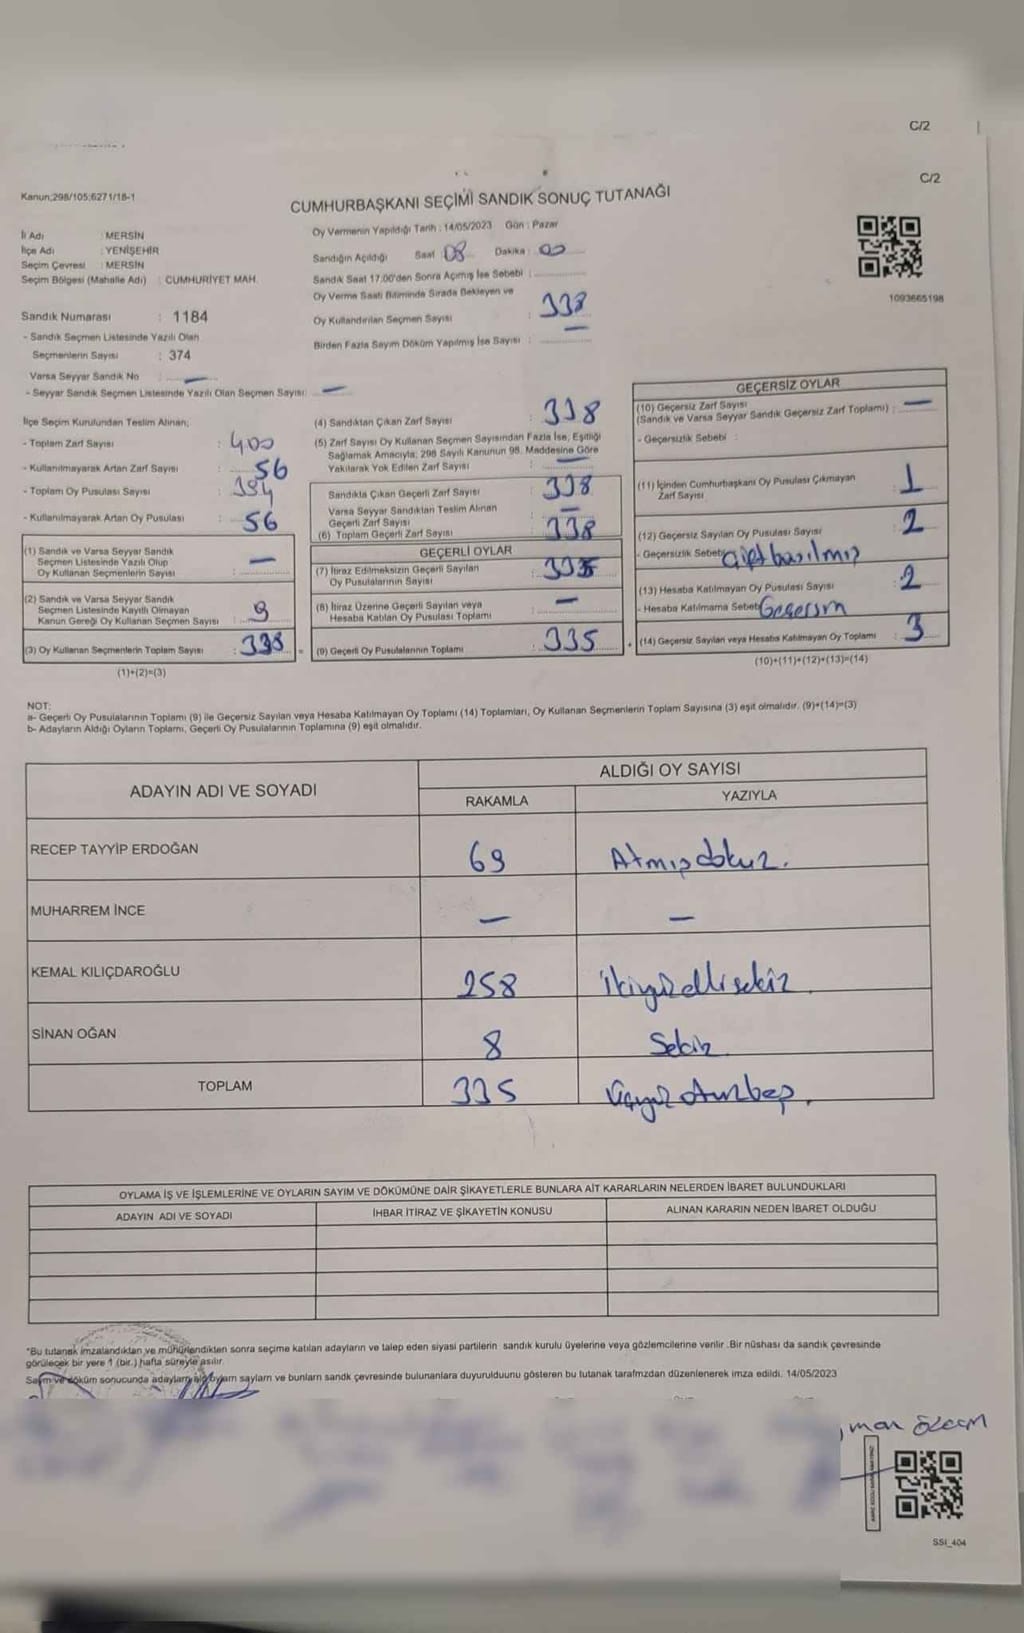 C/2
C/2
Kanun;298/105;6271/18-1
CUMHURBAŞKANI SEÇİMİ SANDIK SONUÇ TUTANAĞI
İl Adı : MERSİN
İlçe Adı : YENİŞEHİR
Seçim Çevresi : MERSİN
Seçim Bölgesi (Mahalle Adı) : CUMHURİYET MAH.
Sandık Numarası : 1184
- Sandık Seçmen Listesinde Yazılı Olan
Seçmenlerin Sayısı : 374
Varsa Seyyar Sandık No : —
- Seyyar Sandık Seçmen Listesinde Yazılı Olan Seçmen Sayısı: —
Oy Vermenin Yapıldığı Tarih : 14/05/2023 Gün : Pazar
Sandığın Açıldığı Saat 08 Dakika : 00
Sandık Saat 17.00'den Sonra Açımış İse Sebebi :
Oy Verme Saati Bitiminde Sırada Bekleyen ve
Oy Kullandırılan Seçmen Sayısı 338
Birden Fazla Sayım Döküm Yapılmış İse Sayısı : —
1093665198
İlçe Seçim Kurulundan Teslim Alınan;
- Toplam Zarf Sayısı : 400
- Kullanılmayarak Artan Zarf Sayısı : 56
- Toplam Oy Pusulası Sayısı : 394
- Kullanılmayarak Artan Oy Pusulası : 56
(1) Sandık ve Varsa Seyyar Sandık
Seçmen Listesinde Yazılı Olup
Oy Kullanan Seçmenlerin Sayısı : —
(2) Sandık ve Varsa Seyyar Sandık
Seçmen Listesinde Kayıtlı Olmayan
Kanun Gereği Oy Kullanan Seçmen Sayısı : 9
(3) Oy Kullanan Seçmenlerin Toplam Sayısı : 338
(1)+(2)=(3)
(4) Sandıktan Çıkan Zarf Sayısı : 338
(5) Zarf Sayısı Oy Kullanan Seçmen Sayısından Fazla İse, Eşitliği
Sağlamak Amacıyla; 298 Sayılı Kanunun 98. Maddesine Göre
Yakılarak Yok Edilen Zarf Sayısı : —
Sandıkta Çıkan Geçerli Zarf Sayısı : 338
Varsa Seyyar Sandıktan Teslim Alınan
Geçerli Zarf Sayısı : —
(6) Toplam Geçerli Zarf Sayısı : 338
GEÇERLİ OYLAR
(7) İtiraz Edilmeksizin Geçerli Sayılan
Oy Pusulalarının Sayısı : 335
(8) İtiraz Üzerine Geçerli Sayılan veya
Hesaba Katılan Oy Pusulası Toplamı : —
(9) Geçerli Oy Pusulalarının Toplamı : 335
GEÇERSİZ OYLAR
(10) Geçersiz Zarf Sayısı
(Sandık ve Varsa Seyyar Sandık Geçersiz Zarf Toplamı) : —
- Geçersizlik Sebebi :
(11) İçinden Cumhurbaşkanı Oy Pusulası Çıkmayan
Zarf Sayısı 1
(12) Geçersiz Sayılan Oy Pusulası Sayısı 2
- Geçersizlik Sebebi çift basılmış
(13) Hesaba Katılmayan Oy Pusulası Sayısı 2
- Hesaba Katılmama Sebebi
(14) Geçersiz Sayılan veya Hesaba Katılmayan Oy Toplamı : 3
(10)+(11)+(12)+(13)=(14)
NOT:
a- Geçerli Oy Pusulalarının Toplamı (9) ile Geçersiz Sayılan veya Hesaba Katılmayan Oy Toplamı (14) Toplamları, Oy Kullanan Seçmenlerin Toplam Sayısına (3) eşit olmalıdır. (9)+(14)=(3)
b- Adayların Aldığı Oyların Toplamı, Geçerli Oy Pusulalarının Toplamına (9) eşit olmalıdır.
ADAYIN ADI VE SOYADI
ALDIĞI OY SAYISI
RAKAMLA YAZIYLA
RECEP TAYYİP ERDOĞAN 69 Atmışdokuz.
MUHARREM İNCE — —
KEMAL KILIÇDAROĞLU 258 ikiyüzellisekiz
SİNAN OĞAN 8 Sekiz
TOPLAM 335 Üçyüz otuzbeş.
OYLAMA İŞ VE İŞLEMLERİNE VE OYLARIN SAYIM VE DÖKÜMÜNE DAİR ŞİKAYETLERLE BUNLARA AİT KARARLARIN NELERDEN İBARET BULUNDUKLARI
ADAYIN ADI VE SOYADI İHBAR İTİRAZ VE ŞİKAYETİN KONUSU ALINAN KARARIN NEDEN İBARET OLDUĞU
"Bu tutanak imzalandıktan ve mühürlendikten sonra seçime katılan adayların ve talep eden siyasi partilerin sandık kurulu üyelerine veya gözlemcilerine verilir .Bir nüshası da sandık çevresinde
görülecek bir yere 1 (bir.) hafta süreyle asılır.
Sayım ve döküm sonucunda adayların aldığı oyların sayıları ve bunların sandık çevresinde bulunanlara duyurulduğunu gösteren bu tutanak tarafımızdan düzenlenerek imza edildi. 14/05/2023
SSI_404